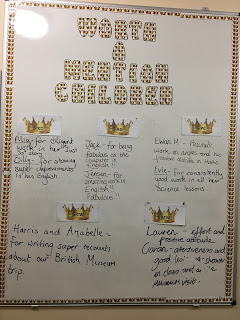 WORTH
A
MENTION
CHILDREN
Abby - for diligent
work in
Billy - for showing
super
in his English.
Jack - for being
fabulous on the
computer in
English!!
Jensen - for
amazing work in
English!!
Fabulous!
Ewan M - Fantastic
work on and his
positive attitude in Maths.
Evie - for consistently
good work in all her
Science lessons.
Harris and Anabelle -
for writing super recounts
about our British Museum
trip.
Lauren - effort and
positive attitude
Ciaran - attentiveness and
good
in class and
museum visit.